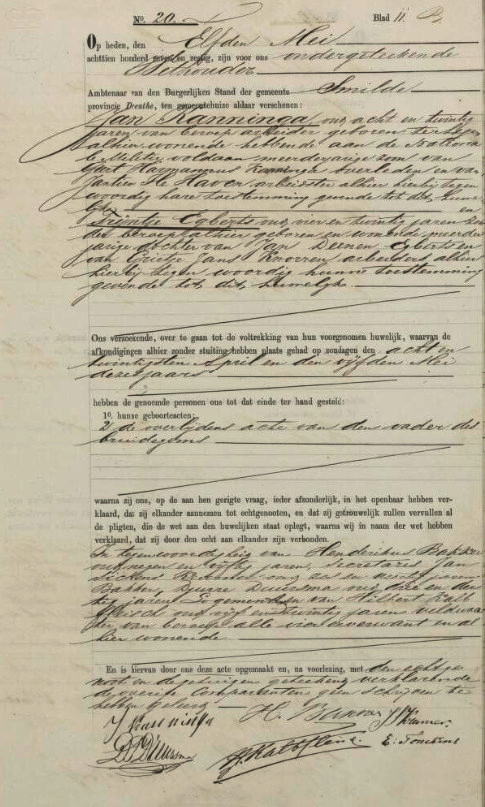 No. 20. Blad 11.
Op heden, den Elfden Mei
achttien honderd zeven en zestig, zijn voor ons ondergeteekende
Wethouder
Ambtenaar van den Burgerlijken Stand der gemeente Smilde
provincie Drenthe, ten gemeentehuize aldaar verschenen:
Jan Kanninga oud acht en twintig
jaren van beroep arbeider geboren te
alhier wonende hebbende aan de Nationa
le Militie voldaan meerderjarige zoon van
Harmannus overleden en van
Haver arbeidster alhier hierbij tegen
woordig hare toestemming gevende tot dit huwe
lijk
Egberts oud vier en twintig jaren zon
der beroep alhier geboren en wonende meerder
jarige dochter van Jan Egberts en
van Grietje Jans arbeiders alhier
hierbij tegenwoordig hunne toestemming
gevende tot dit huwelijk
Ons verzoekende, over te gaan tot de voltrekking van hun voorgenomen huwelijk, waarvan de
afkondigingen alhier zonder stuiting hebben plaats gehad op zondagen den acht en
twintigsten April en den vijfden Mei
dezes jaars
hebben de genoemde personen ons tot dat einde ter hand gesteld:
1o. hunne geboorteacten;
2 de overlijdens acte van den vader des
bruidegoms
waarna zij ons, op de aan hen gerigte vraag, ieder afzonderlijk, in het openbaar hebben ver-
klaard, dat zij elkander aannemen tot echtgenooten, en dat zij getrouwelijk zullen vervullen al
de pligten, die de wet aan den huwelijken staat oplegt, waarna wij in naam der wet hebben
verklaard, dat zij door den echt aan elkander zijn verbonden.
In tegenwoordigheid van Henderikus Bakker
oud negen en vijftig jaren, secretaris Jan
Kramer oud zes en
Bakker, Duursma oud drie en der
tig jaren en van
oud vijf en twintig jaren veldwach
ter van beroep alle vier onverwant en al
hier wonende
En is hiervan door ons deze acte opgemaakt en, na voorlezing, met den echtge
noot en de getuigen geteekend verklarende
de overige Comparanten geen schrijven te
hebben geleerd
J Kanninga H. Bakker J Kramer
Duursma